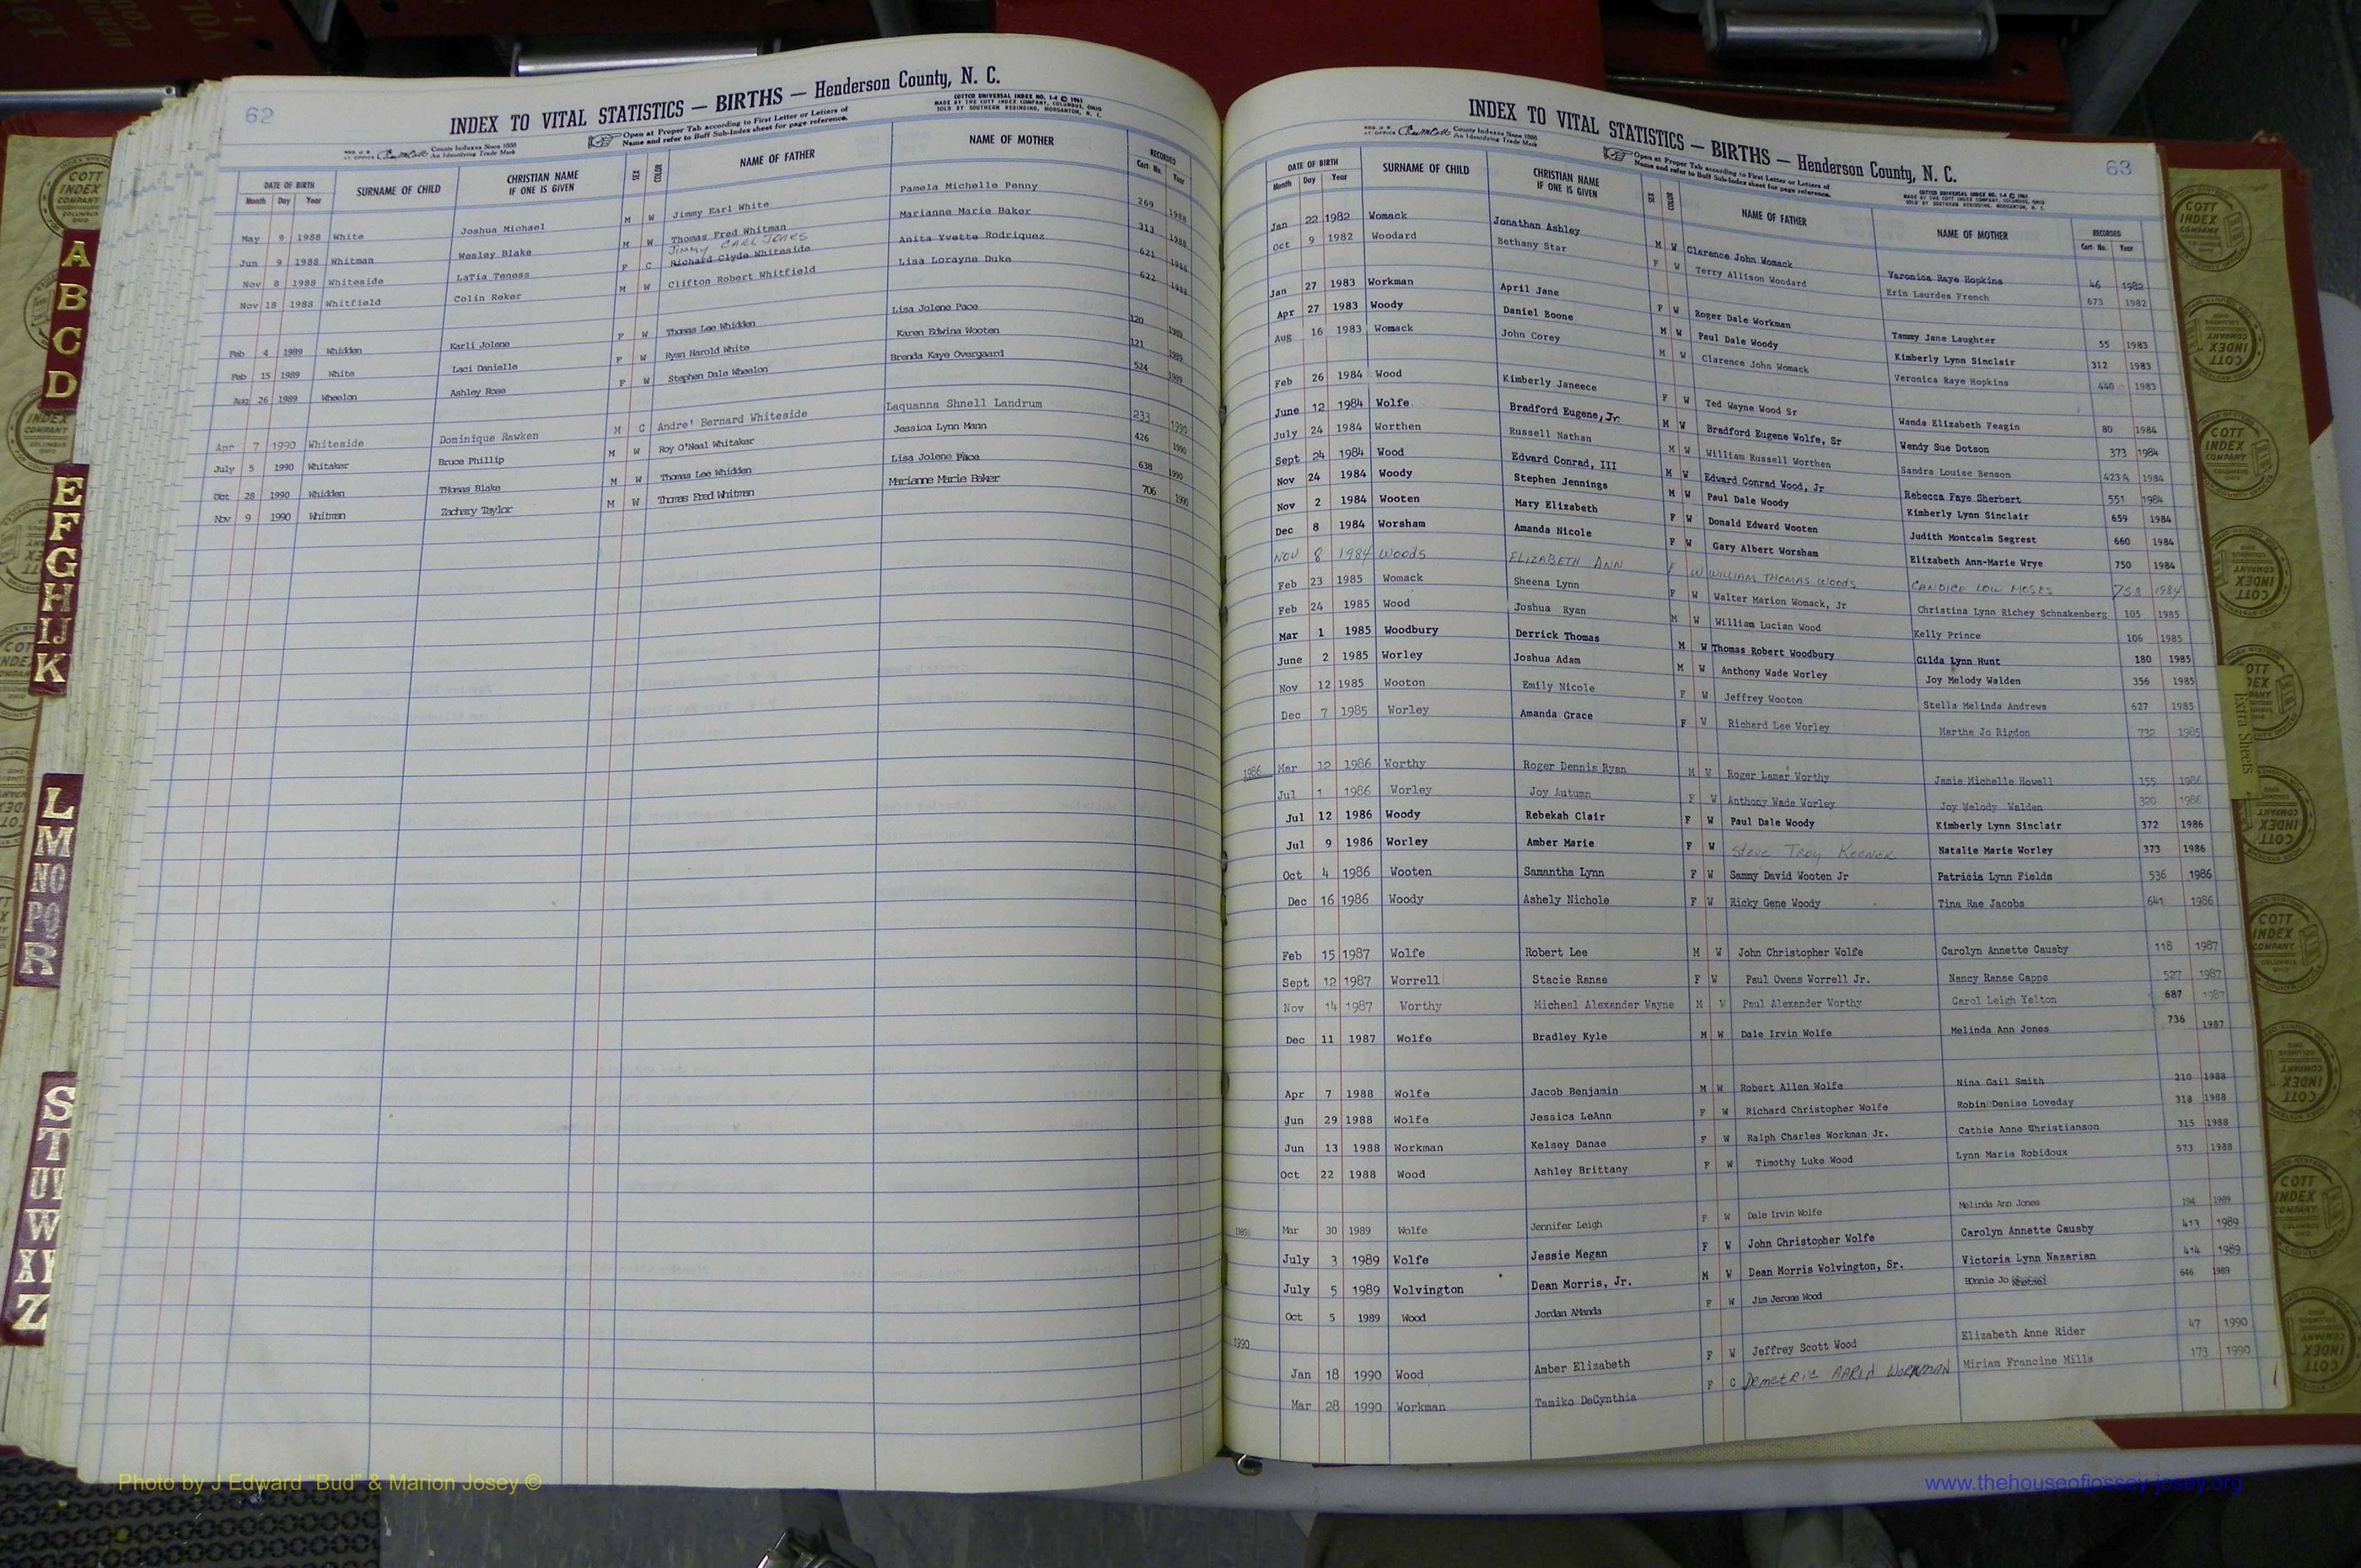 62
INDEX TO VITAL STATISTICS — BIRTHS — Henderson County, N. C.
COTTCO UNIVERSAL INDEX NO. 1-4 © 1961
MADE BY THE COTT INDEX COMPANY, COLUMBUS, OHIO
SOLD BY SOUTHERN REBINDING, MORGANTON, N. C.
County Indexes Since 1888
An Identifying Trade Mark
Open at Proper Tab according to First Letter or Letters of
Name and refer to Buff Sub-Index sheet for page reference.
DATE OF BIRTH Month Day Year SURNAME OF CHILD CHRISTIAN NAME IF ONE IS GIVEN SEX COLOR NAME OF FATHER NAME OF MOTHER RECORDED Cert. No. Year
May 9 1988 White Joshua Michael M W Jimmy Earl White Pamela Michelle Penny 269 1988
Jun 9 1988 Whitman Wesley Blake M W Thomas Fred Whitman Marianne Marie Baker 313 1988
JIMMY CARL JONES
Nov 8 1988 Whiteside LaTia Teness F C Richard Clyde Whiteside Anita Yvette Rodriquez 621 1988
Nov 18 1988 Whitfield Colin Reker M W Clifton Robert Whitfield Lisa Lorayne Duke 622 1988
Feb 4 1989 Whidden Karli Jolene F W Thomas Lee Whidden Lisa Jolene Pace 120 1989
Feb 15 1989 White Laci Danielle F W Ryan Harold White Karen Edwina Wooten 121 1989
Aug 26 1989 Wheelon Ashley Rose F W Stephen Dale Wheelon Brenda Kaye Overgaard 524 1989
Apr 7 1990 Whiteside Dominique Rawken M C Andre' Bernard Whiteside Laquanna Shnell Landrum 233 1990
July 5 1990 Whitaker Bruce Phillip M W Roy O'Neal Whitaker Jessica Lynn Mann 426 1990
Oct 28 1990 Whidden THomas Blake M W Thomas Lee Whidden Lisa Jolene Pace 638 1990
Nov 9 1990 Whitman Zachary Taylor M W Thomas Fred Whitman Marianne Marie Baker 706 1990
63
INDEX TO VITAL STATISTICS — BIRTHS — Henderson County, N. C.
COTTCO UNIVERSAL INDEX NO. 1-4 © 1961
MADE BY THE COTT INDEX COMPANY, COLUMBUS, OHIO
SOLD BY SOUTHERN REBINDING, MORGANTON, N. C.
County Indexes Since 1888
An Identifying Trade Mark
Open at Proper Tab according to First Letter or Letters of
Name and refer to Buff Sub-Index sheet for page reference.
DATE OF BIRTH Month Day Year SURNAME OF CHILD CHRISTIAN NAME IF ONE IS GIVEN SEX COLOR NAME OF FATHER NAME OF MOTHER RECORDED Cert. No. Year
Jan 22 1982 Womack Jonathan Ashley M W Clarence John Womack Varonica Raye Hopkins 46 1982
Oct 9 1982 Woodard Bethany Star F W Terry Allison Woodard Erin Laurdes French 673 1982
Jan 27 1983 Workman April Jane F W Roger Dale Workman Tammy Jane Laughter 55 1983
Apr 27 1983 Woody Daniel Boone M W Paul Dale Woody Kimberly Lynn Sinclair 312 1983
Aug 16 1983 Womack John Corey M W Clarence John Womack Veronica Raye Hopkins 440 1983
Feb 26 1984 Wood Kimberly Janeece F W Ted Wayne Wood Sr Wanda Elizabeth Feagin 80 1984
June 12 1984 Wolfe Bradford Eugene, Jr. M W Bradford Eugene Wolfe, Sr Wendy Sue Dotson 373 1984
July 24 1984 Worthen Russell Nathan M W William Russell Worthen Sandra Louise Benson 423A 1984
Sept 24 1984 Wood Edward Conrad, III M W Edward Conrad Wood, Jr Rebecca Faye Sherbert 551 1984
Nov 24 1984 Woody Stephen Jennings M W Paul Dale Woody Kimberly Lynn Sinclair 659 1984
Nov 2 1984 Wooten Mary Elizabeth F W Donald Edward Wooten Judith Montcalm Segrest 660 1984
Dec 8 1984 Worsham Amanda Nicole F W Gary Albert Worsham Elizabeth Ann-Marie Wrye 750 1984
NOV 8 1984 Woods ELIZABETH ANN F W WILLIAM THOMAS WOODS CANDICE LOW MOSES 758 1984
Feb 23 1985 Womack Sheena Lynn F W Walter Marion Womack, Jr Christina Lynn Richey Schnakenberg 105 1985
Feb 24 1985 Wood Joshua Ryan M W William Lucian Wood Kelly Prince 106 1985
Mar 1 1985 Woodbury Derrick Thomas M W Thomas Robert Woodbury Gilda Lynn Hunt 180 1985
June 2 1985 Worley Joshua Adam M W Anthony Wade Worley Joy Melody Walden 356 1985
Nov 12 1985 Wooton Emily Nicole F W Jeffrey Wooton Stella Melinda Andrews 627 1985
Dec 7 1985 Worley Amanda Grace F W Richard Lee Worley Martha Jo Rigdon 732 1985
1986 Mar 12 1986 Worthy Roger Dennis Ryan M W Roger Lamar Worthy Jamie Michelle Howell 155 1986
Jul 1 1986 Worley Joy Autumn F W Anthony Wade Worley Joy Melody Walden 320 1986
Jul 12 1986 Woody Rebekah Clair F W Paul Dale Woody Kimberly Lynn Sinclair 372 1986
Jul 9 1986 Worley Amber Marie F W Steve Troy Keener Natalie Marie Worley 373 1986
Oct 4 1986 Wooten Samantha Lynn F W Sammy David Wooten Jr Patricia Lynn Fields 536 1986
Dec 16 1986 Woody Ashely Nichole F W Ricky Gene Woody Tina Rae Jacobs 641 1986
Feb 15 1987 Wolfe Robert Lee M W John Christopher Wolfe Carolyn Annette Causby 118 1987
Sept 12 1987 Worrell Stacie Ranae F W Paul Owens Worrell Jr. Nancy Ranae Capps 527 1987
Nov 14 1987 Worthy Micheal Alexander Wayne M W Paul Alexander Worthy Carol Leigh Yelton 687 1987
Dec 11 1987 Wolfe Bradley Kyle M W Dale Irvin Wolfe Melinda Ann Jones 736 1987
Apr 7 1988 Wolfe Jacob Benjamin M W Robert Allen Wolfe Nina Gail Smith 210 1988
Jun 29 1988 Wolfe Jessica LeAnn F W Richard Christopher Wolfe Robin Denise Loveday 318 1988
Jun 13 1988 Workman Kelsey Danae F W Ralph Charles Workman Jr. Cathie Anne Christianson 315 1988
Oct 22 1988 Wood Ashley Brittany F W Timothy Luke Wood Lynn Marie Robidoux 573 1988
1989 Mar 30 1989 Wolfe Jennifer Leigh F W Dale Irvin Wolfe Melinda Ann Jones 194 1989
July 3 1989 Wolfe Jessie Megan F W John Christopher Wolfe Carolyn Annette Causby 413 1989
July 5 1989 Wolvington Dean Morris, Jr. M W Dean Morris Wolvington, Sr. Victoria Lynn Nazarian 414 1989
Oct 5 1989 Wood Jordan AManda F W Jim Jerome Wood BOnnie Jo Whetsel 646 1989
1990
Jan 18 1990 Wood Amber Elizabeth F W Jeffrey Scott Wood Elizabeth Anne Rider 47 1990
Mar 28 1990 Workman Tamiko DeCynthia F C Demetric AARIN WORKMAN Miriam Francine Mills 173 1990
A
B
C
D
E
F
G
H
IJ
K
L
M
NO
PQ
R
S
T
UV
W
XY
Z
Extra Sheets
COTT INDEX COMPANY COLUMBUS OHIO
Photo by J Edward "Bud" & Marion Josey ©
www.thehouseofjossey-josey.org